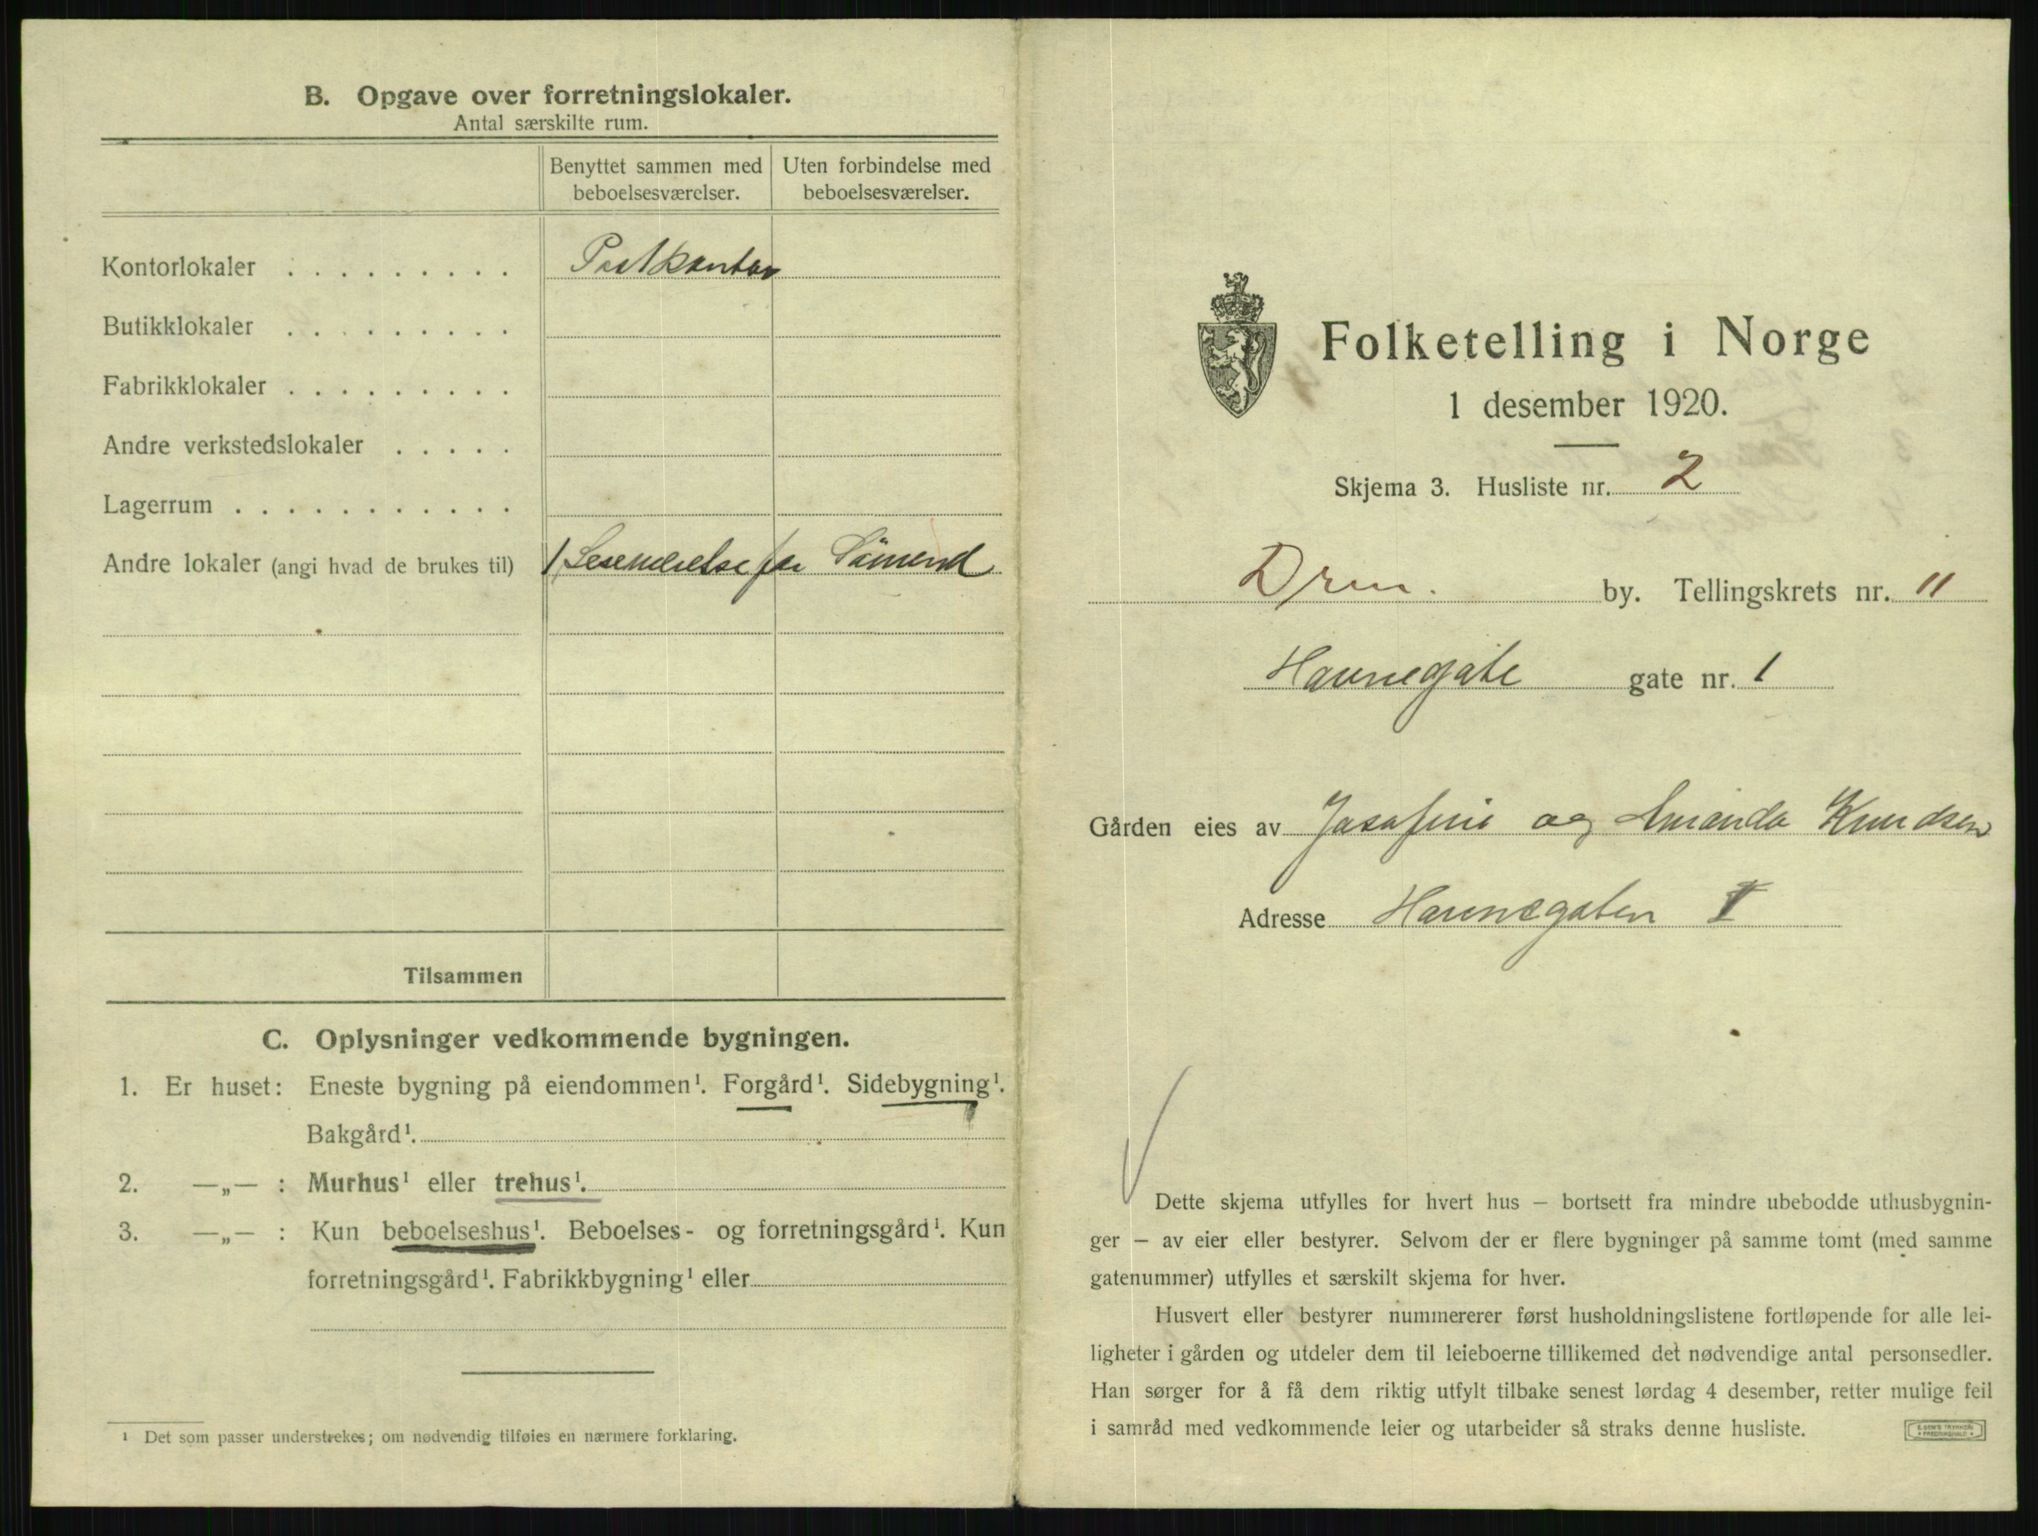 B. Opgave over forretningslokaler.
Antal særskilte rum.
Benyttet sammen med beboelsesværelser.
Uten forbindelse med beboelsesværelser.
Kontorlokaler . . . . . . . . . Postkontor
Butikklokaler . . . . . . . . .
Fabrikklokaler . . . . . . . . .
Andre verkstedslokaler . . . . .
Lagerrum . . . . . . . . . . . .
Andre lokaler (angi hvad de brukes til) 1 Leseværelse for Sömend
Tilsammen
C. Oplysninger vedkommende bygningen.
1. Er huset: Eneste bygning på eiendommen¹. Forgård¹. Sidebygning¹.
Bakgård¹.
2. —„— : Murhus¹ eller trehus¹.
3. —„— : Kun beboelseshus¹. Beboelses- og forretningsgård¹. Kun
forretningsgård¹. Fabrikkbygning¹ eller
¹ Det som passer understrekes; om nødvendig tilføies en nærmere forklaring.
Folketelling i Norge
1 desember 1920.
Skjema 3. Husliste nr. 2
Drm. by. Tellingskrets nr. 11
Havnegate gate nr. 1
Gården eies av Josefine og Amanda Knudsen
Adresse Havnegaten I
Dette skjema utfylles for hvert hus – bortsett fra mindre ubebodde uthusbygnin-
ger – av eier eller bestyrer. Selvom der er flere bygninger på samme tomt (med samme
gatenummer) utfylles et særskilt skjema for hver.
Husvert eller bestyrer nummererer først husholdningslistene fortløpende for alle lei-
ligheter i gården og utdeler dem til leieboerne tillikemed det nødvendige antal personsedler.
Han sørger for å få dem riktig utfylt tilbake senest lørdag 4 desember, retter mulige feil
i samråd med vedkommende leier og utarbeider så straks denne husliste.